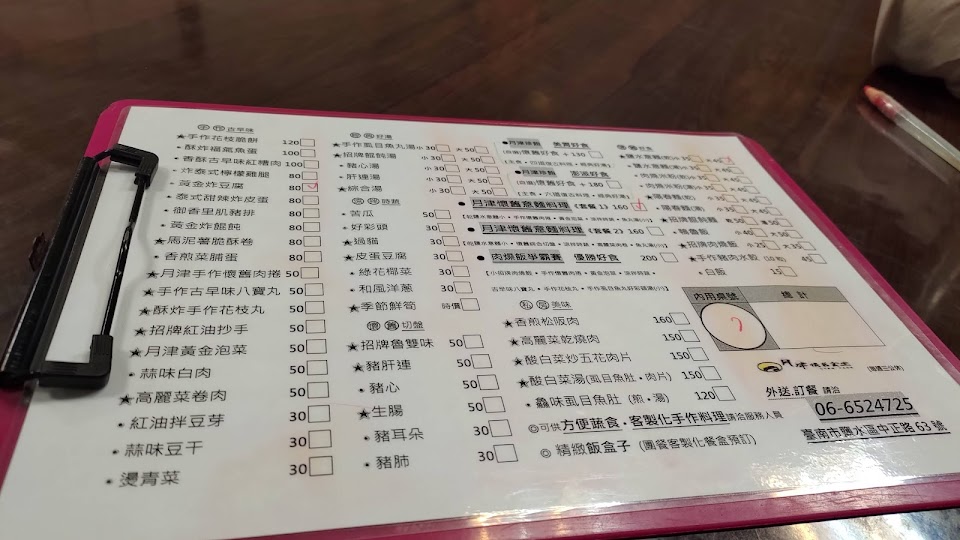 古早味
★手作花枝脆餅 120
•酥炸福氣魚蛋 100
•香酥古早味紅糟肉 100
•炸泰式檸檬雞腿 80
•黃金炸豆腐 80
•泰式甜辣炸皮蛋 80
•御香里肌豬排 80
•黃金炸餛飩 80
★馬泥薯脆酥卷 80
•香煎菜脯蛋 80
★月津手作懷舊肉捲 50
★手作古早味八寶丸 50
★酥炸手作花枝丸 50
★招牌紅油抄手 50
★月津黃金泡菜 50
•蒜味白肉 50
★高麗菜卷肉 50
•紅油拌豆芽 30
•蒜味豆干 30
•燙青菜 30
好湯
★手作虱目魚丸湯 小30 大50
★招牌餛飩湯 小30 大50
•豬心湯 小30 大50
•肝連湯 小30 大50
★綜合湯 小30 大50
時蔬
•苦瓜 50
•好彩頭 30
★過貓 30
★皮蛋豆腐 30
•綠花椰菜 30
•和風洋蔥 30
★季節鮮筍 時價
懷舊切盤
★招牌魯雙味 50
★豬肝連 50
•豬心 50
★生腸 50
•豬耳朵 50
•豬肺 50
懷舊好食 +130
澎派好食
懷舊好食 +180
•月津懷舊意麵料理 (套餐1) 160
•月津懷舊意麵料理 (套餐2) 160
•肉燥飯爭霸賽 優勝好食 200
私房美味
★香煎松阪肉 160
★高麗菜乾燒肉 150
★酸白菜炒五花肉片 150
★酸白菜湯(虱目魚肚•肉片) 150
•鱻味虱目魚肚(煎•湯) 120
◎可供方便蔬食•客製化手作料理請洽服務人員
◎精緻飯盒子(團餐客製化餐盒預訂)
★招牌肉燥飯 小25 大35
★手作豬肉水餃(10粒) 45
•白飯 15
內用桌號
總計
外送.訂餐 請洽
06-6524725
臺南市鹽水區中正路63號